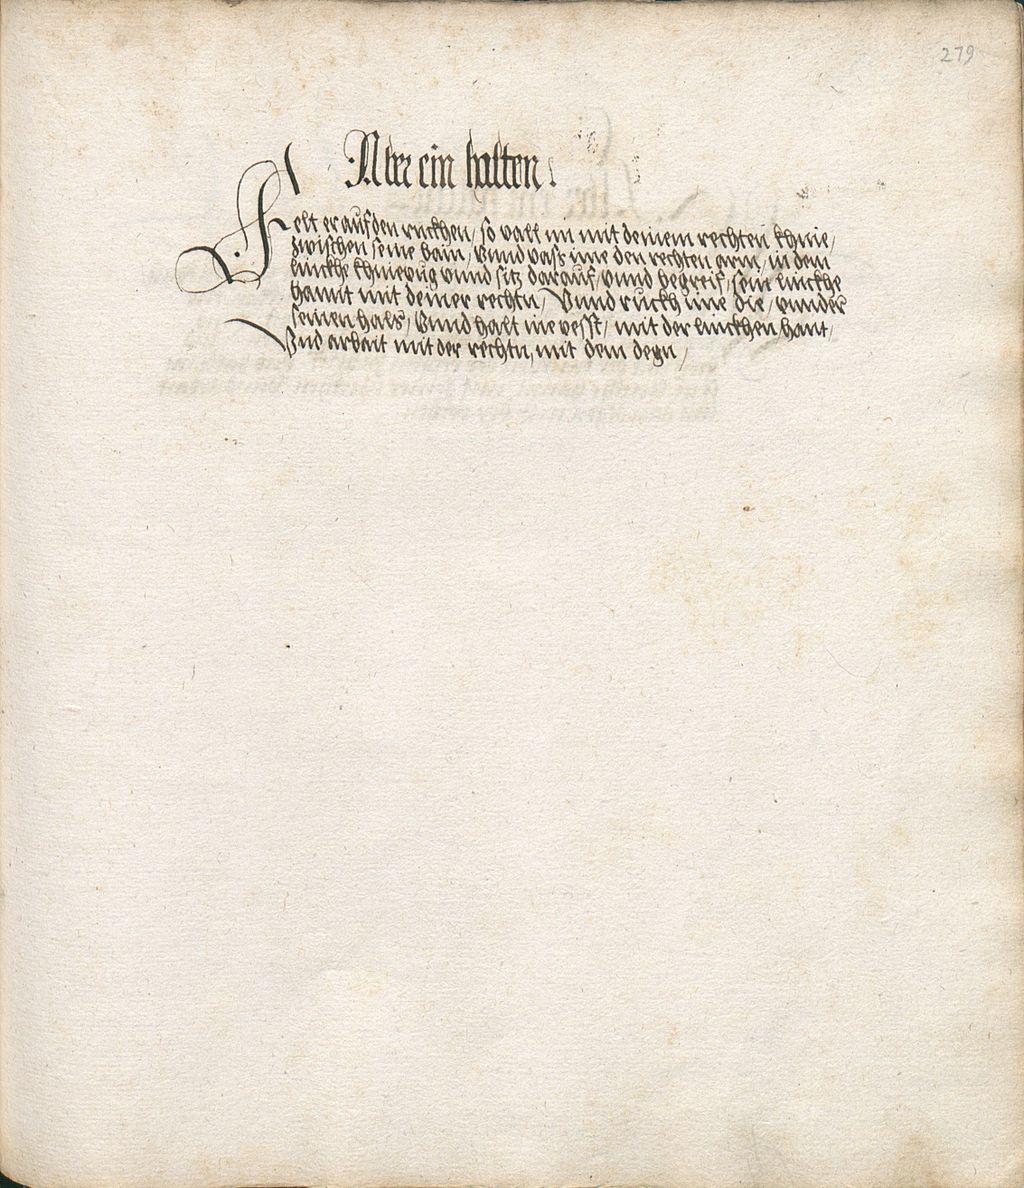 279
Aber ein halten .
Felt er auf den ruckhen / so vall im mit deinem rechten khnie /
zwischen seine bain / Vnnd vass ime den rechten arm / in dein
linckhe khniepug vnnd sitz darauf / vnnd begreif / sein linckhe
hannt mit deiner rechtn / Vnnd ruckh ime die / vnnder
seinen hals / Vnnd halt ine vesst / mit der linckhen hant /
Vnd arbait mit der rechtn, mit dem degn /